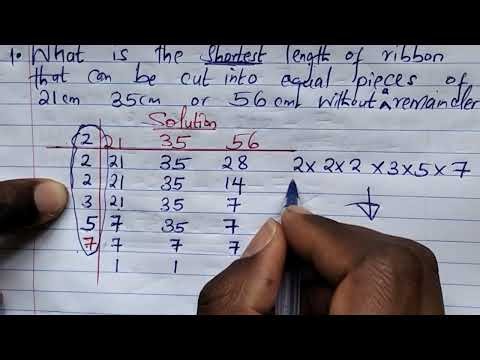 1. What is the Shortest length of ribbon
that can be cut into equal pieces of
21cm 35cm or 56cm without a remainder
Solution
2 21 35 56
2 21 35 28
2 21 35 14 2 x 2 x 2 x 3 x 5 x 7
3 21 35 7
5 7 35 7
7 7 7 7
1 1